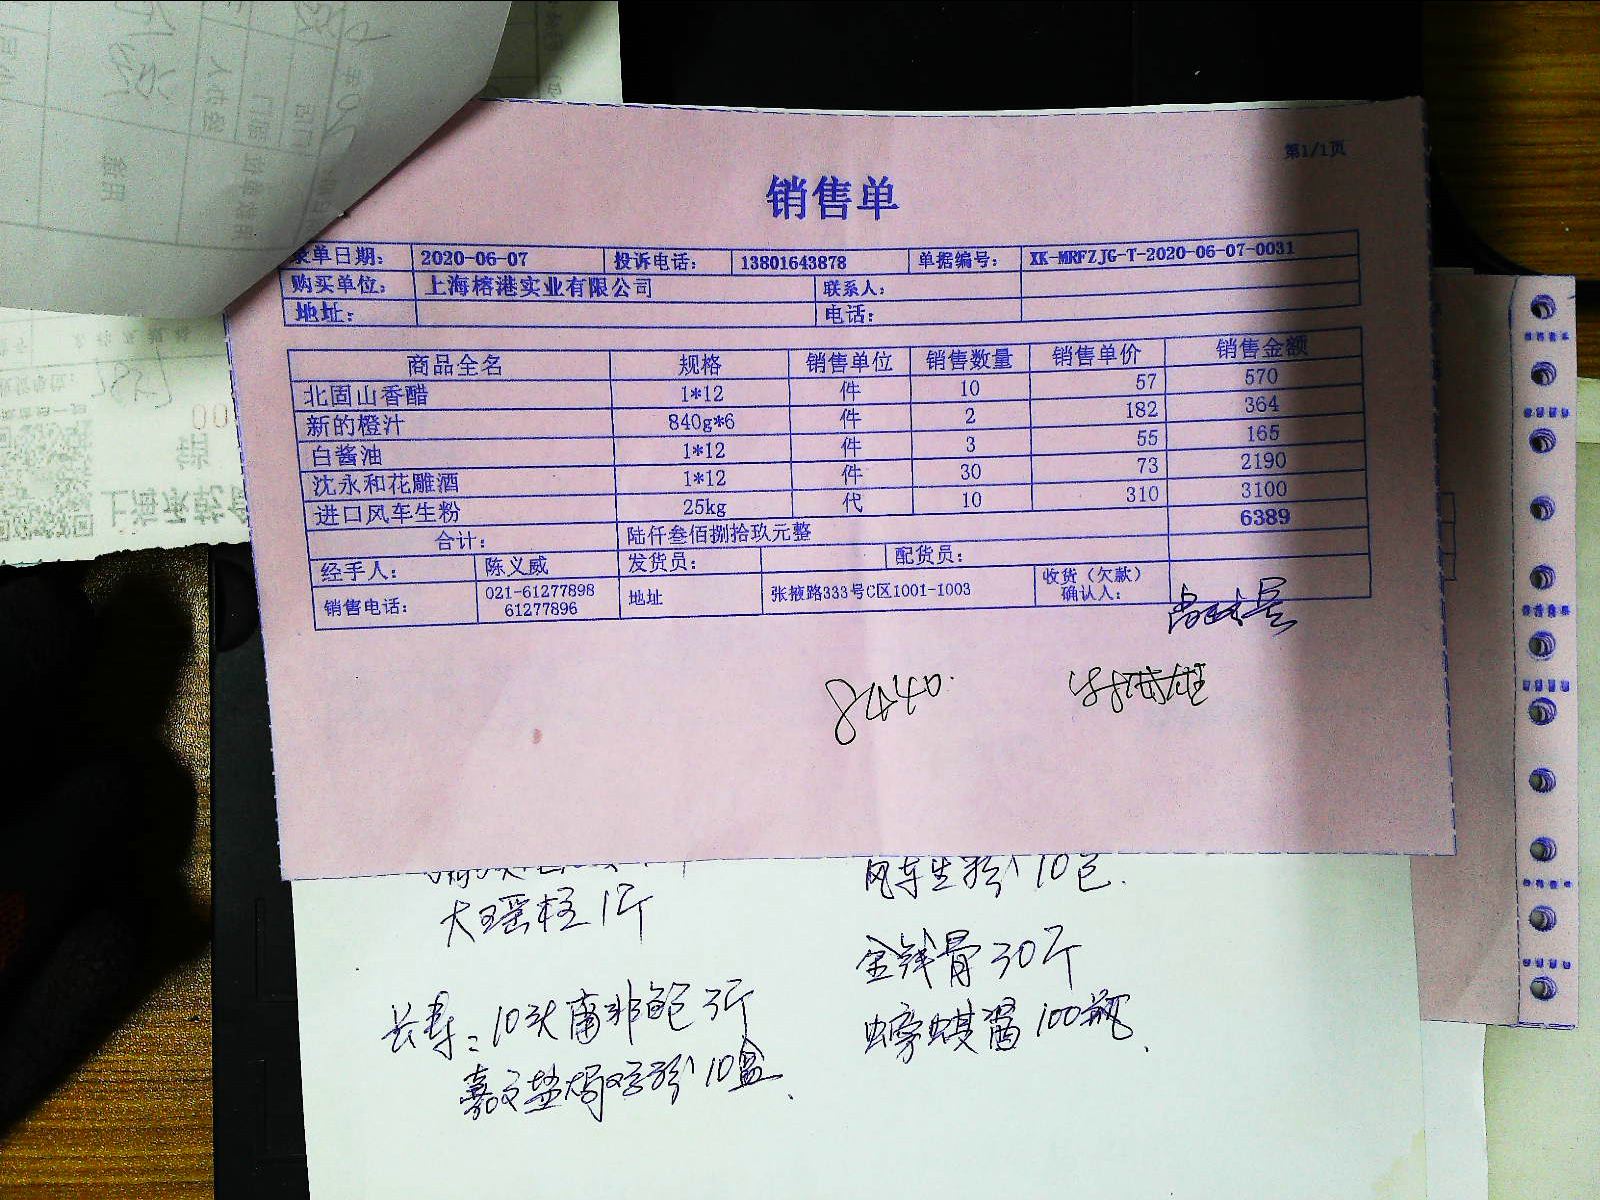 第1/1页
销售单
录单日期： 2020-06-07 投诉电话： 13801643878 单据编号： XK-MRFZJG-T-2020-06-07-0031
购买单位： 上海榕港实业有限公司 联系人：
地址： 电话：
商品全名 规格 销售单位 销售数量 销售单价 销售金额
北固山香醋 1*12 件 10 57 570
新的橙汁 840g*6 件 2 182 364
白酱油 1*12 件 3 55 165
沈永和花雕酒 1*12 件 30 73 2190
进口风车生粉 25kg 代 10 310 3100
合计： 陆仟叁佰捌拾玖元整 6389
经手人： 陈义威 发货员： 配货员：
销售电话： 021-61277898 61277896 地址 张掖路333号C区1001-1003 收货（欠款）确认人：
8440.
风车生粉10包.
大瑶柱1斤
金钱骨30斤
长寿：10头南非鲍3斤
蟛蜞酱100瓶.
10盒.